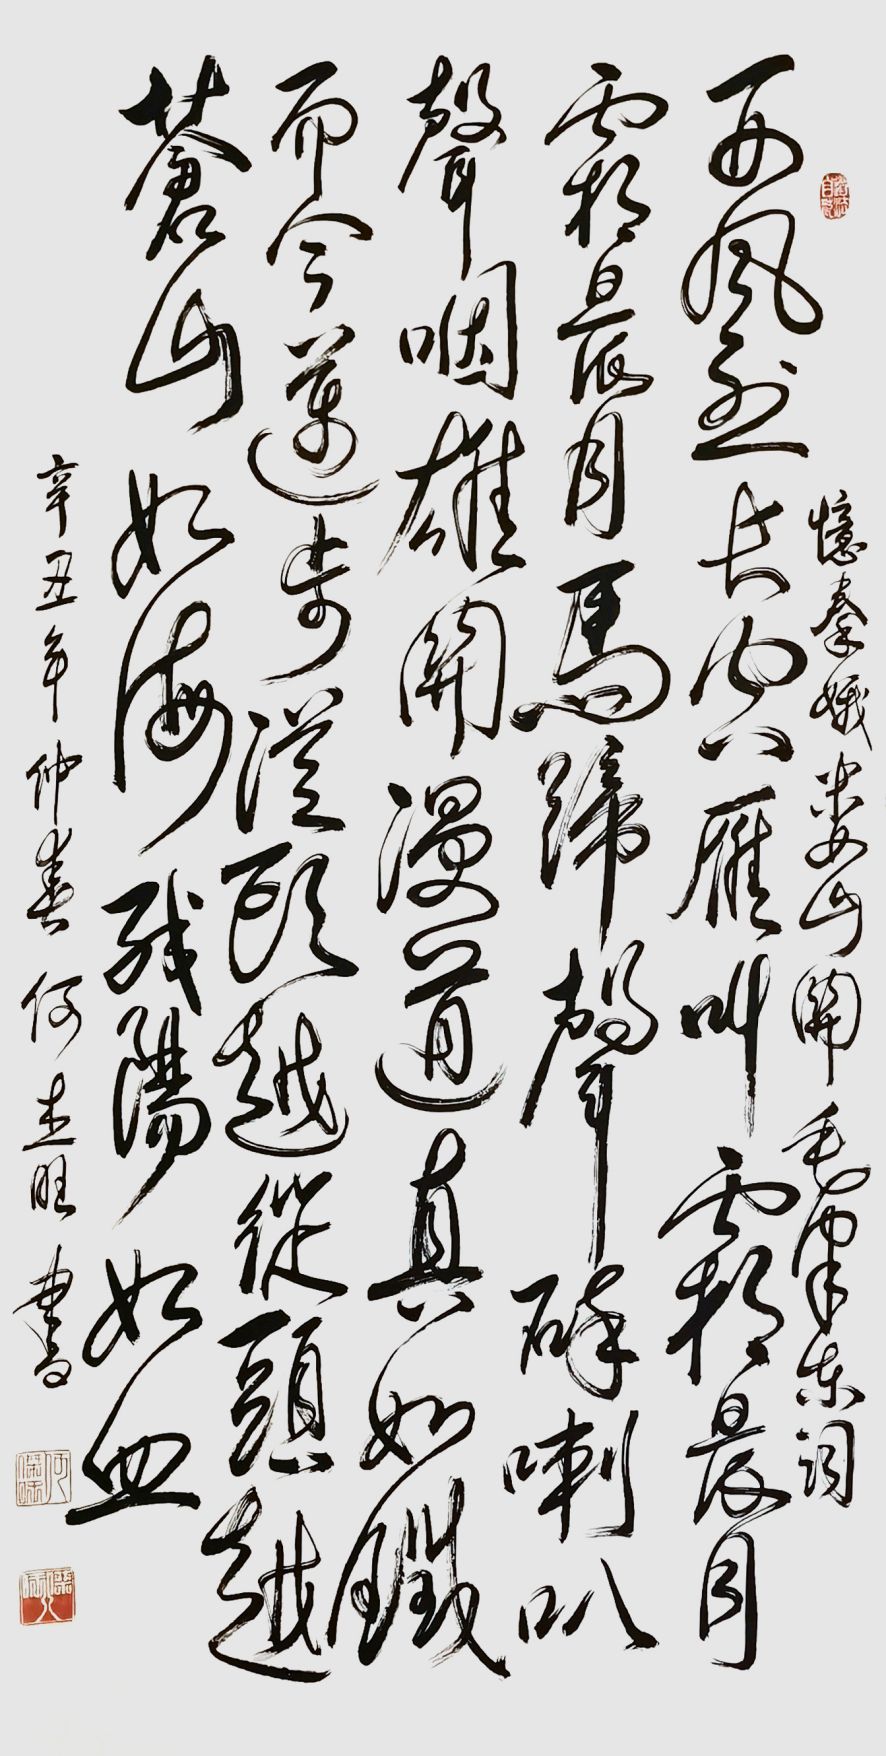 憶秦娥 娄山關 毛澤东詞
西風烈长空雁叫霜晨月
霜晨月馬蹄聲碎喇叭
聲咽雄關漫道真如鐵
而今邁步從頭越從頭越
蒼山如海残陽如血
辛丑年仲春何杰旺書